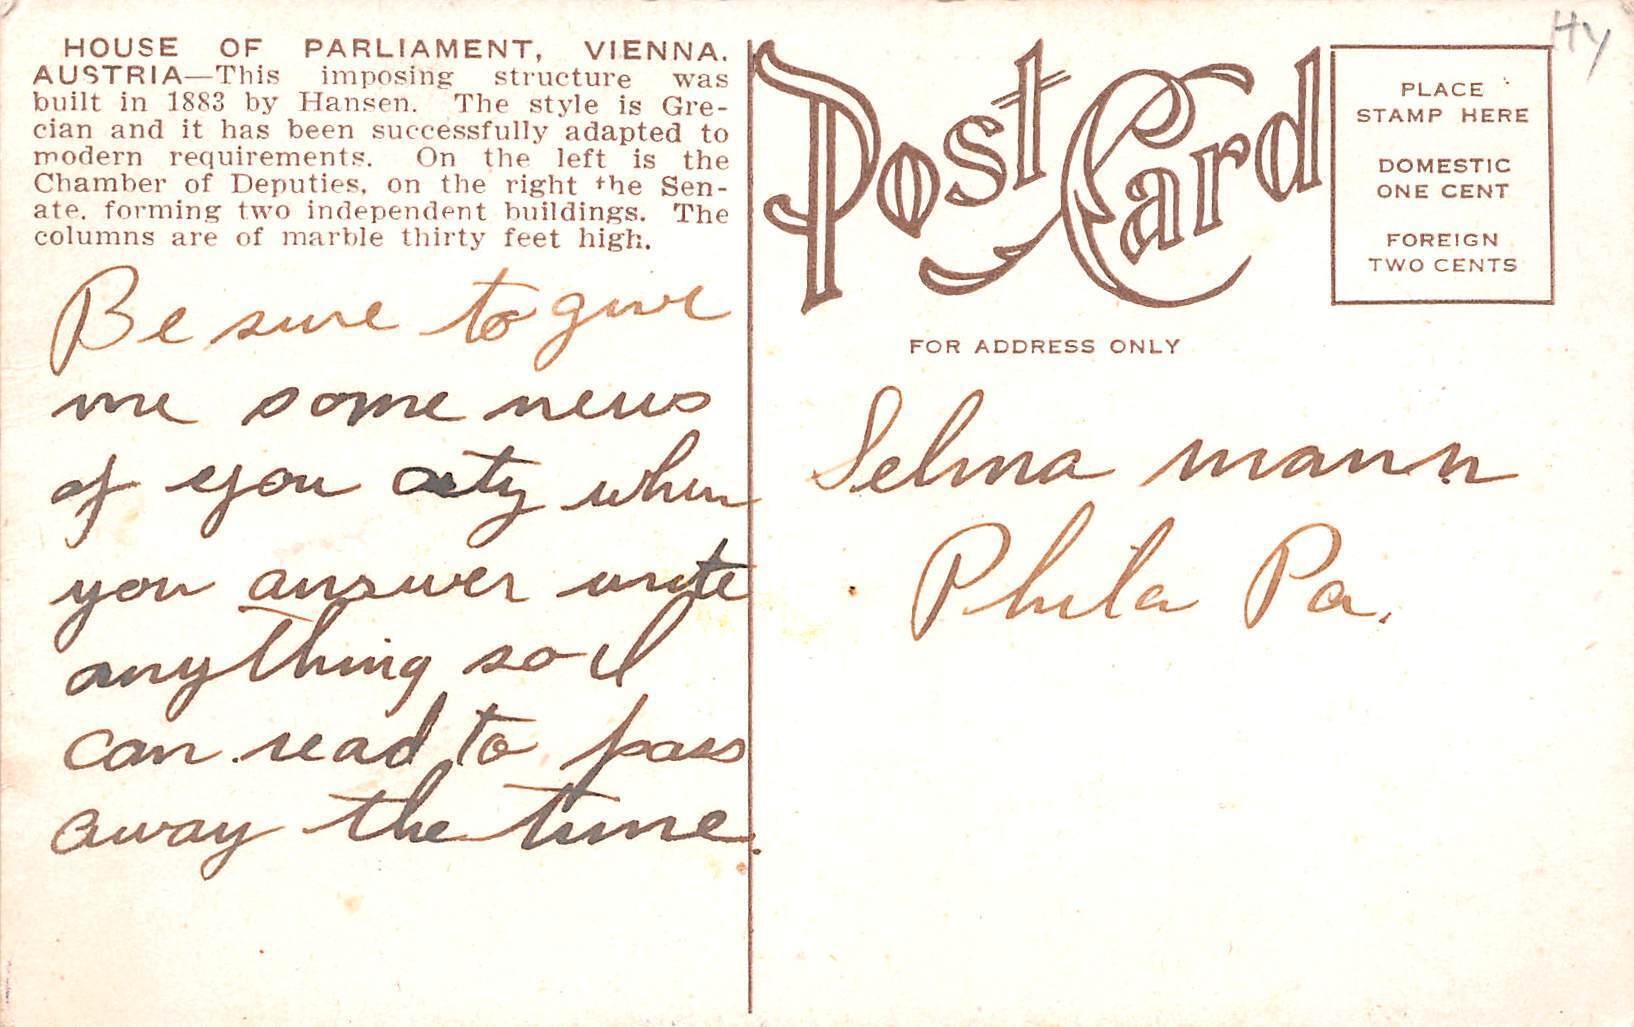 HOUSE OF PARLIAMENT, VIENNA.
AUSTRIA—This imposing structure was
built in 1883 by Hansen. The style is Gre-
cian and it has been successfully adapted to
modern requirements. On the left is the
Chamber of Deputies, on the right the Sen-
ate, forming two independent buildings. The
columns are of marble thirty feet high.
Be sure to give
me some news
of you city when
you answer write
anything so I
can read to pass
away the time.
Post Card
FOR ADDRESS ONLY
PLACE
STAMP HERE
DOMESTIC
ONE CENT
FOREIGN
TWO CENTS
Hy
Selma mann
Phila Pa.